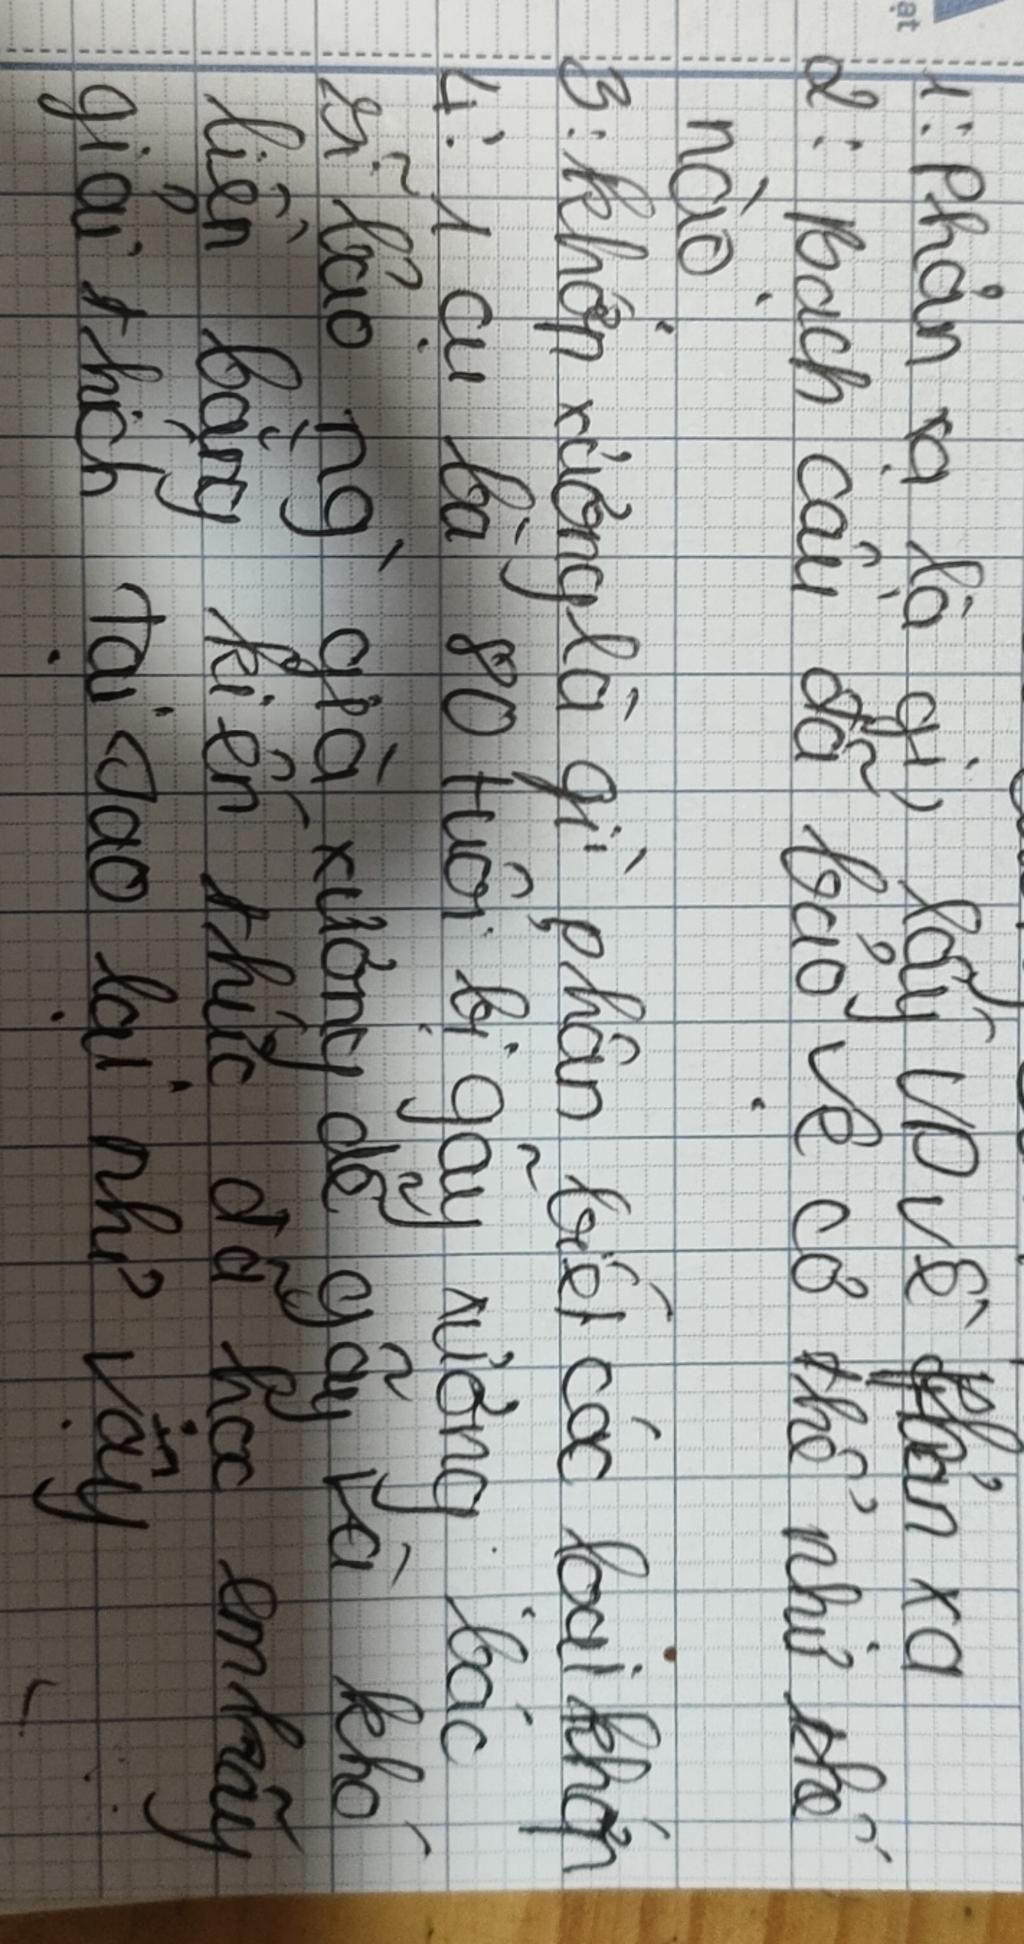 1: Phản xạ là gì, lấy VD về phản xạ
2: Bạch cầu đã bảo vệ cơ thể như thế
nào
3: Khớp xương là gì phân biệt các loại khớp
4: 1 cụ bà 80 tuổi bị gãy xương. bác
sĩ bảo ng` già xương dễ gãy và khó
liền bằng kiến thức đã học em hãy
giải thích tại sao lại như vậy
ạt